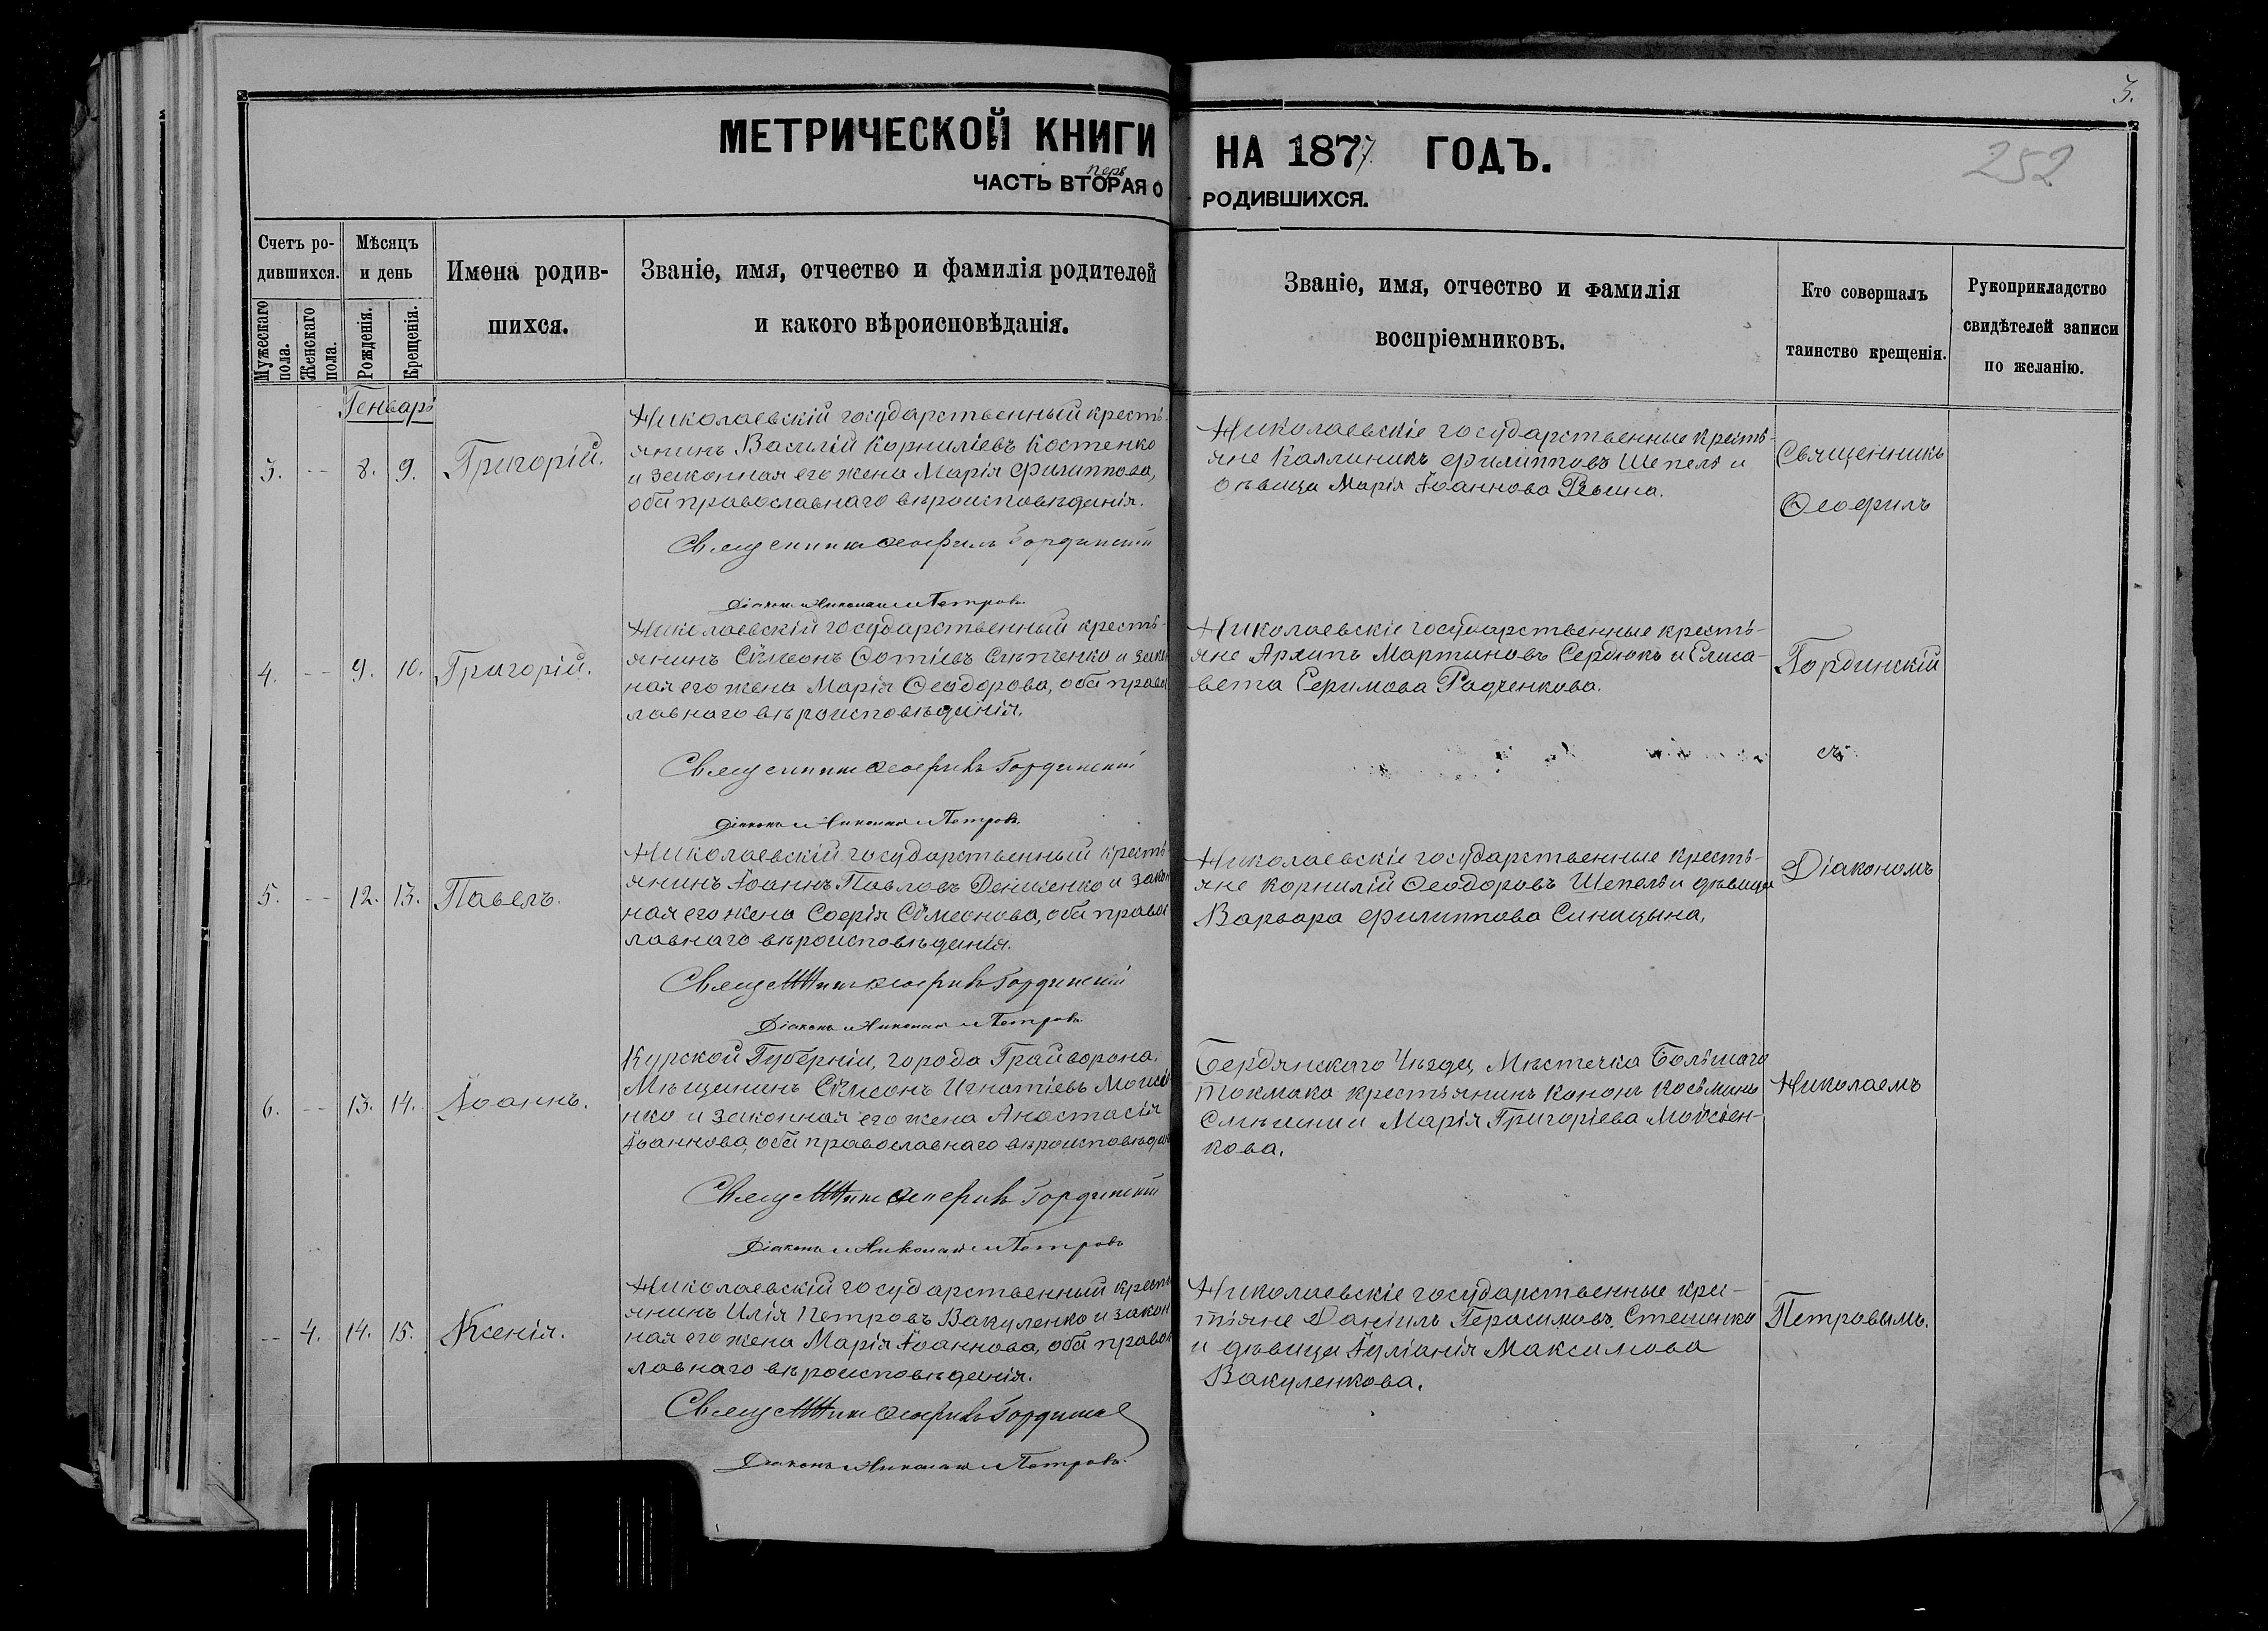 3.
МЕТРИЧЕСКОЙ КНИГИ НА 1877 ГОДЪ.
252
перв
ЧАСТЬ ВТОРАЯ О РОДИВШИХСЯ.
Счетъ ро-
дившихся.
Мужескаго пола.
Женскаго пола.
Мѣсяцъ
и день
Рожденія.
Крещенія.
Имена родив-
шихся.
Званіе, имя, отчество и фамилія родителей
и какого вѣроисповѣданія.
Званіе, имя, отчество и фамилія
воспріемниковъ.
Кто совершалъ
таинство крещенія.
Рукоприкладство
свидѣтелей записи
по желанію.
Генварь
3. -- 8. 9. Григорій.
Николаевскій государственный кресть-
янинъ Василій Корниліевъ Костенко
и законная его жена Марія Филиппова,
оба православнаго вѣроисповѣданія.
Священникъ Ѳеофилъ Гординскій
Діаконъ Николай Петровъ
Николаевскіе государственные кресть-
яне Каллиникъ Филипповъ Шепель и
дѣвица Марія Іоаннова
Священникъ
Ѳеофилъ
4. -- 9. 10. Григорій.
Николаевскій государственный кресть-
янинъ Сѷмеонъ Фотіевъ Слѣпченко и закон
ная его жена Марія Ѳеодорова, оба правос
лавнаго вѣроисповѣданія.
Священникъ Ѳеофилъ Гординскій
Діаконъ Николай Петровъ
Николаевскіе государственные кресть-
яне Архипъ Мартиновъ Сердюкъ и Елиса-
вета Ефимова Радченкова.
Гординскій
съ
5. -- 12. 13. Павелъ.
Николаевскій государственный кресть
янинъ Іоаннъ Павловъ Денисенко и закон
ная его жена Софія Сѷмеонова, оба правос
лавнаго вѣроисповѣданія.
Священникъ Ѳеофилъ Гординскій
Діаконъ Николай Петровъ
Николаевскіе государственные кресть-
яне Корнилій Ѳеодоровъ Шепель и дѣвица
Варвара Филиппова Синицына.
Діакономъ
6. -- 13. 14. Іоаннъ.
Курской Губерніи, города Грайворона,
Мѣщанинъ Сѷмеонъ Игнатіевъ Моисе
нко и законная его жена Анастасія
Іоаннова, оба православнаго вѣроисповѣдан
Священникъ Ѳеофилъ Гординскій
Діаконъ Николай Петровъ
Бердянскаго Уѣзда, Мѣстечка Большаго
Токмака крестьянинъ Кононъ Косьминъ
и Марія Григоріева Мойсіен-
кова.
Николаемъ
-- 4. 14. 15. Ксенія.
Николаевскій государственный кресть
янинъ Илія Петровъ Вакуленко и закон
ная его жена Марія Іоаннова, оба правос
лавнаго вѣроисповѣданія.
Священникъ Ѳеофилъ Гординскій
Діаконъ Николай Петровъ
Николаевскіе государственные кре-
стьяне Даніилъ Герасимовъ Стешенко
и дѣвица Іуліанія Максимова
Вакуленкова.
Петровымъ.